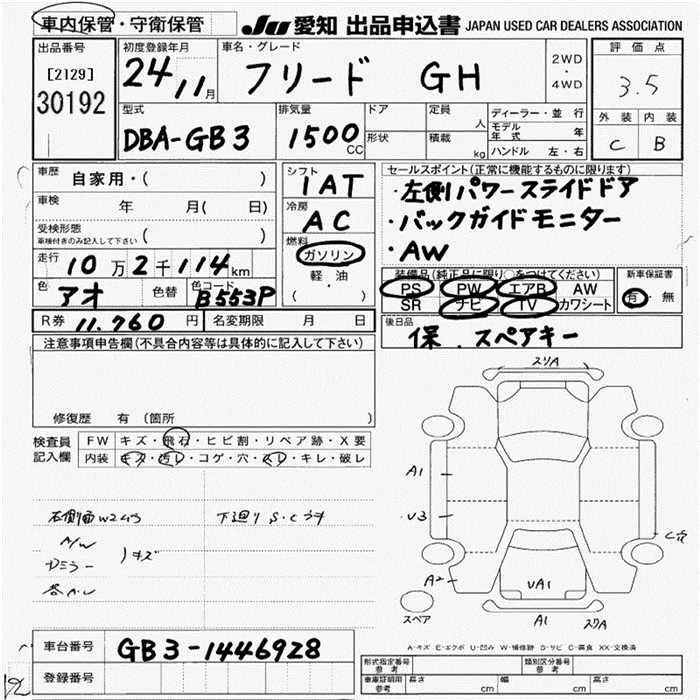 車内保管・守衛保管 JU 愛知 出品申込書 JAPAN USED CAR DEALERS ASSOCIATION
出品番号 初度登録年月 車名・グレード 評価点
[2129] 24年 11月 フリード GH 2WD・4WD 3.5
30192
型式 排気量 ドア 定員 人 ディーラー・並行 外装 内装
DBA-GB3 1500CC 形状 積載 kg モデル年式 年 C B
ハンドル 左・右
車歴 自家用・( ) シフト 1AT セールスポイント(正常に機能するものに限ります)
・左側パワースライドドア
車検 年 月( 日) 冷房 AC ・バックガイドモニター
受検形態 ( ) 燃料 ・AW
車検付きのみ記入して下さい ガソリン
走行 10万2千114km 軽・油 装備品(純正品に限り○をつけてください) 新車保証書
色 アオ 色替 色コード B553P ( ) PS PW エアB AW 有・無
SR ナビ TV カワシート
R券 11,760円 名変期限 月 日 後日品 保.スペアキー
注意事項申告欄(不具合内容等は具体的に記入して下さい)
スリA
修復歴 有(箇所
検査員 FW キズ・飛石・ヒビ割・リペア跡・X要
記入欄 内装 キズ・汚レ・コゲ・穴・スレ・キレ・破レ
A1
右側面W2ムラ 下廻りS.Cウキ U3
A/W キズ
ドミラー
A2 UA1
スペア A1 スリA
車台番号 GB3-1446928 A-キズ E-エクボ U-凹み W-補修跡 S-サビ C-腐食 XX-交換済
登録番号 形式指定番号 参考 類別区分番号 参考
車庫証明用 参考 長さ cm 幅 cm 高さ cm